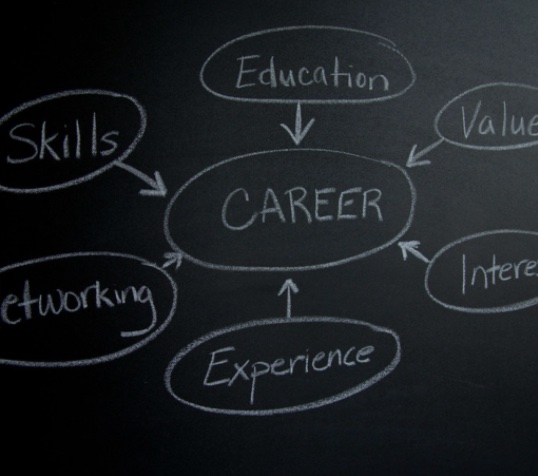 Education
Skills
Value
CAREER
etworking
Intere
Experience